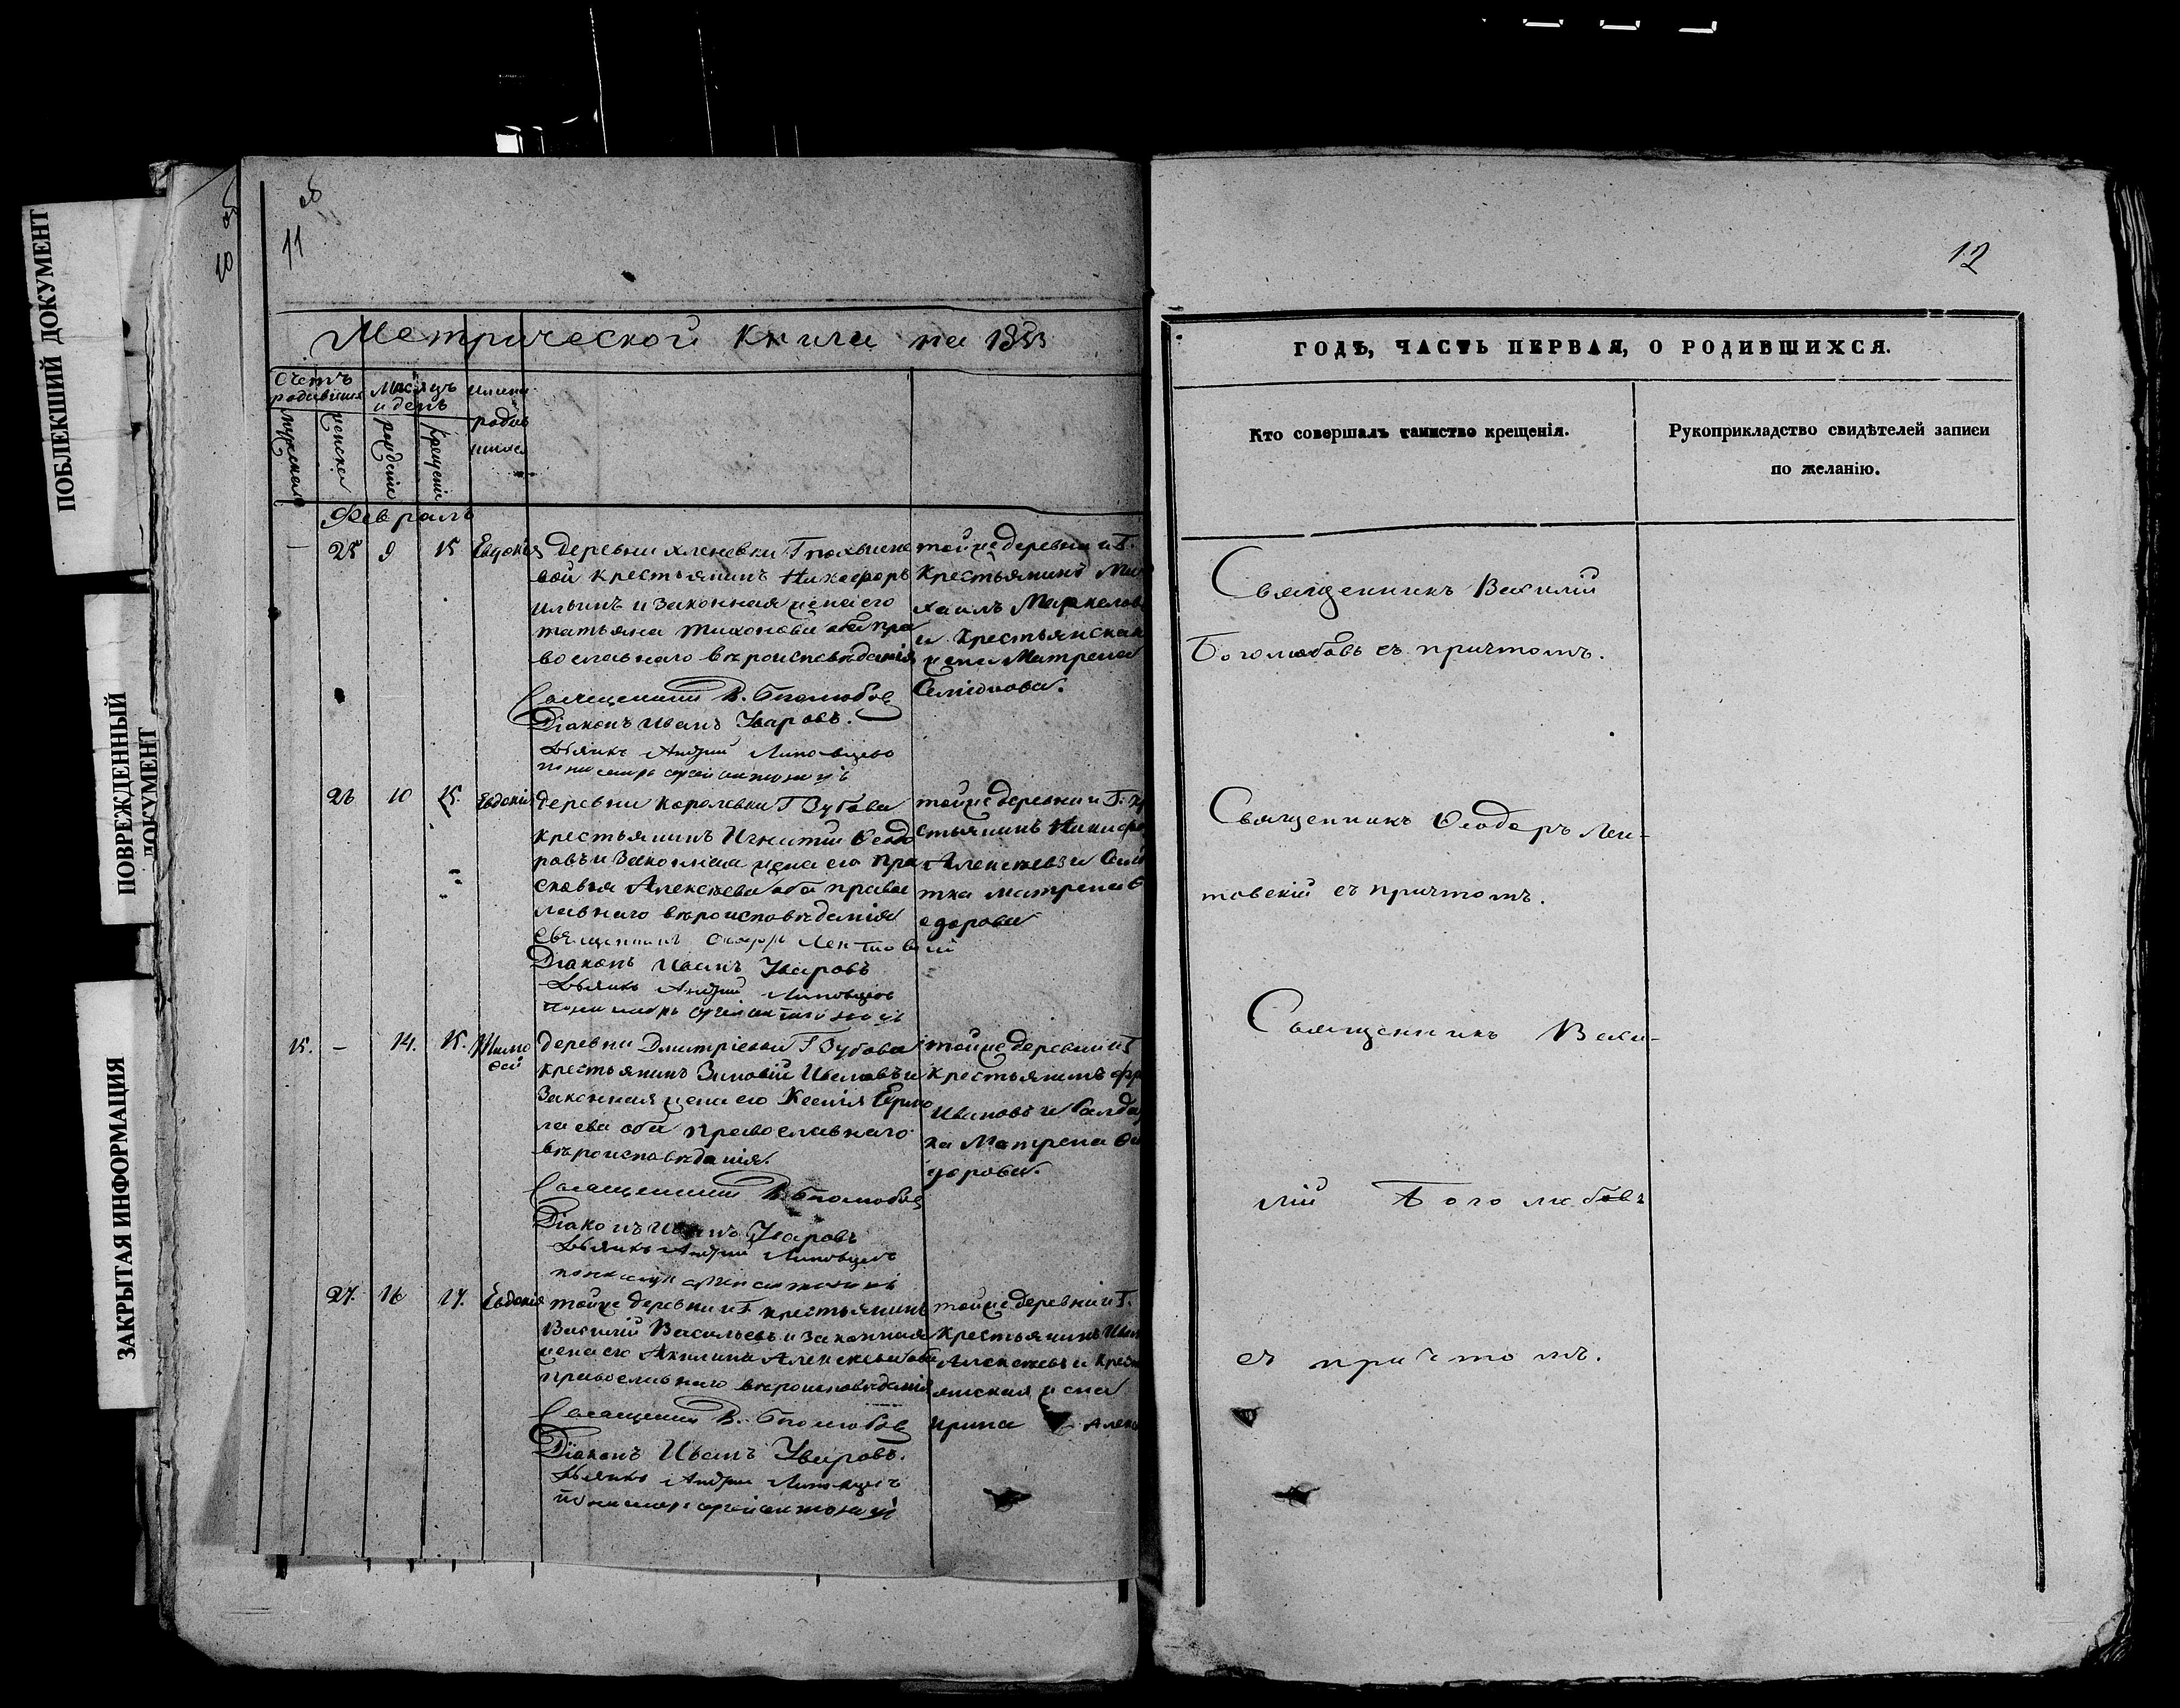 ПОБЛЕКШИЙ ДОКУМЕНТ
ПОВРЕЖДЕННЫЙ
ДОКУМЕНТ
ЗАКРЫТАЯ ИНФОРМАЦИЯ
10 об
об
11
Метрической книги на 1853
Счетъ
родившихся
Мѣсяцъ
и день
имена
родив
шихся
мужеска
женска
рождения
крещения
Февраль
— 25 9 15 Евдокия
деревни Хленовки Г
крестьянинъ Никифоръ
Ильинъ и законная жена его
татьяна Тихонова оба пра
вославнаго вѣроисповѣданія
Священникъ В. Боголюбовъ
Діаконъ Иванъ Уваровъ.
Дьячикъ Андрей
тойже деревни и Г.
Крестьянинъ Ми
хаилъ Маркеловъ
и Крестьянская
жена Матрена
Семіонова.
26 10 15. Евдокія
деревни Королевки Г Зубова
крестьянинъ Игнатій Феодо
ровъ и законная жена его Пра
сковья Алексѣева оба правос
лавнаго вѣроисповѣданія
священникъ Лентовскій
Діаконъ Иванъ Уваровъ
Дьячикъ Андрей
тойже деревни и Г. кр
стьянинъ Никифо
Алексѣевъ и
тка Матрена Ѳ
едорова
15. — 14. 15. Тимо
фей
деревни Дмитріевки Г Зубова
крестьянинъ Зиновій Ивановъ и
Законная жена его Ксенія Ермо
лаева оба православнаго
вѣроисповѣданія.
Священникъ В. Боголюбовъ
Діаконъ Иванъ Уваровъ
Дьячикъ Андрей
тойже деревни и Г
крестьянинъ
Ивановъ и Солдат
ка Матрена Ѳе
дорова.
27. 16 17. Евдокія
тойже деревни и Г крестьянинъ
Василій Васильевъ и законная
жена его Акилина Алексѣева оба
православнаго вѣроисповѣданія
Священникъ В. Боголюбовъ
Діаконъ Иванъ Уваровъ.
Дьячикъ Андрей
тойже деревни и Г.
Крестьянинъ Иван
Алексѣевъ и Крест
янская жена
Ирина Алекс
12
ГОДЪ, ЧАСТЬ ПЕРВАЯ, О РОДИВШИХСЯ.
Кто совершалъ таинство крещенія.
Рукоприкладство свидѣтелей записи
по желанію.
Священникъ Василій
Боголюбовъ съ причтомъ.
Священникъ Ѳеодоръ Лен-
товскій съ причтомъ.
Священникъ Васи-
лій Боголюбовъ
съ причтомъ.